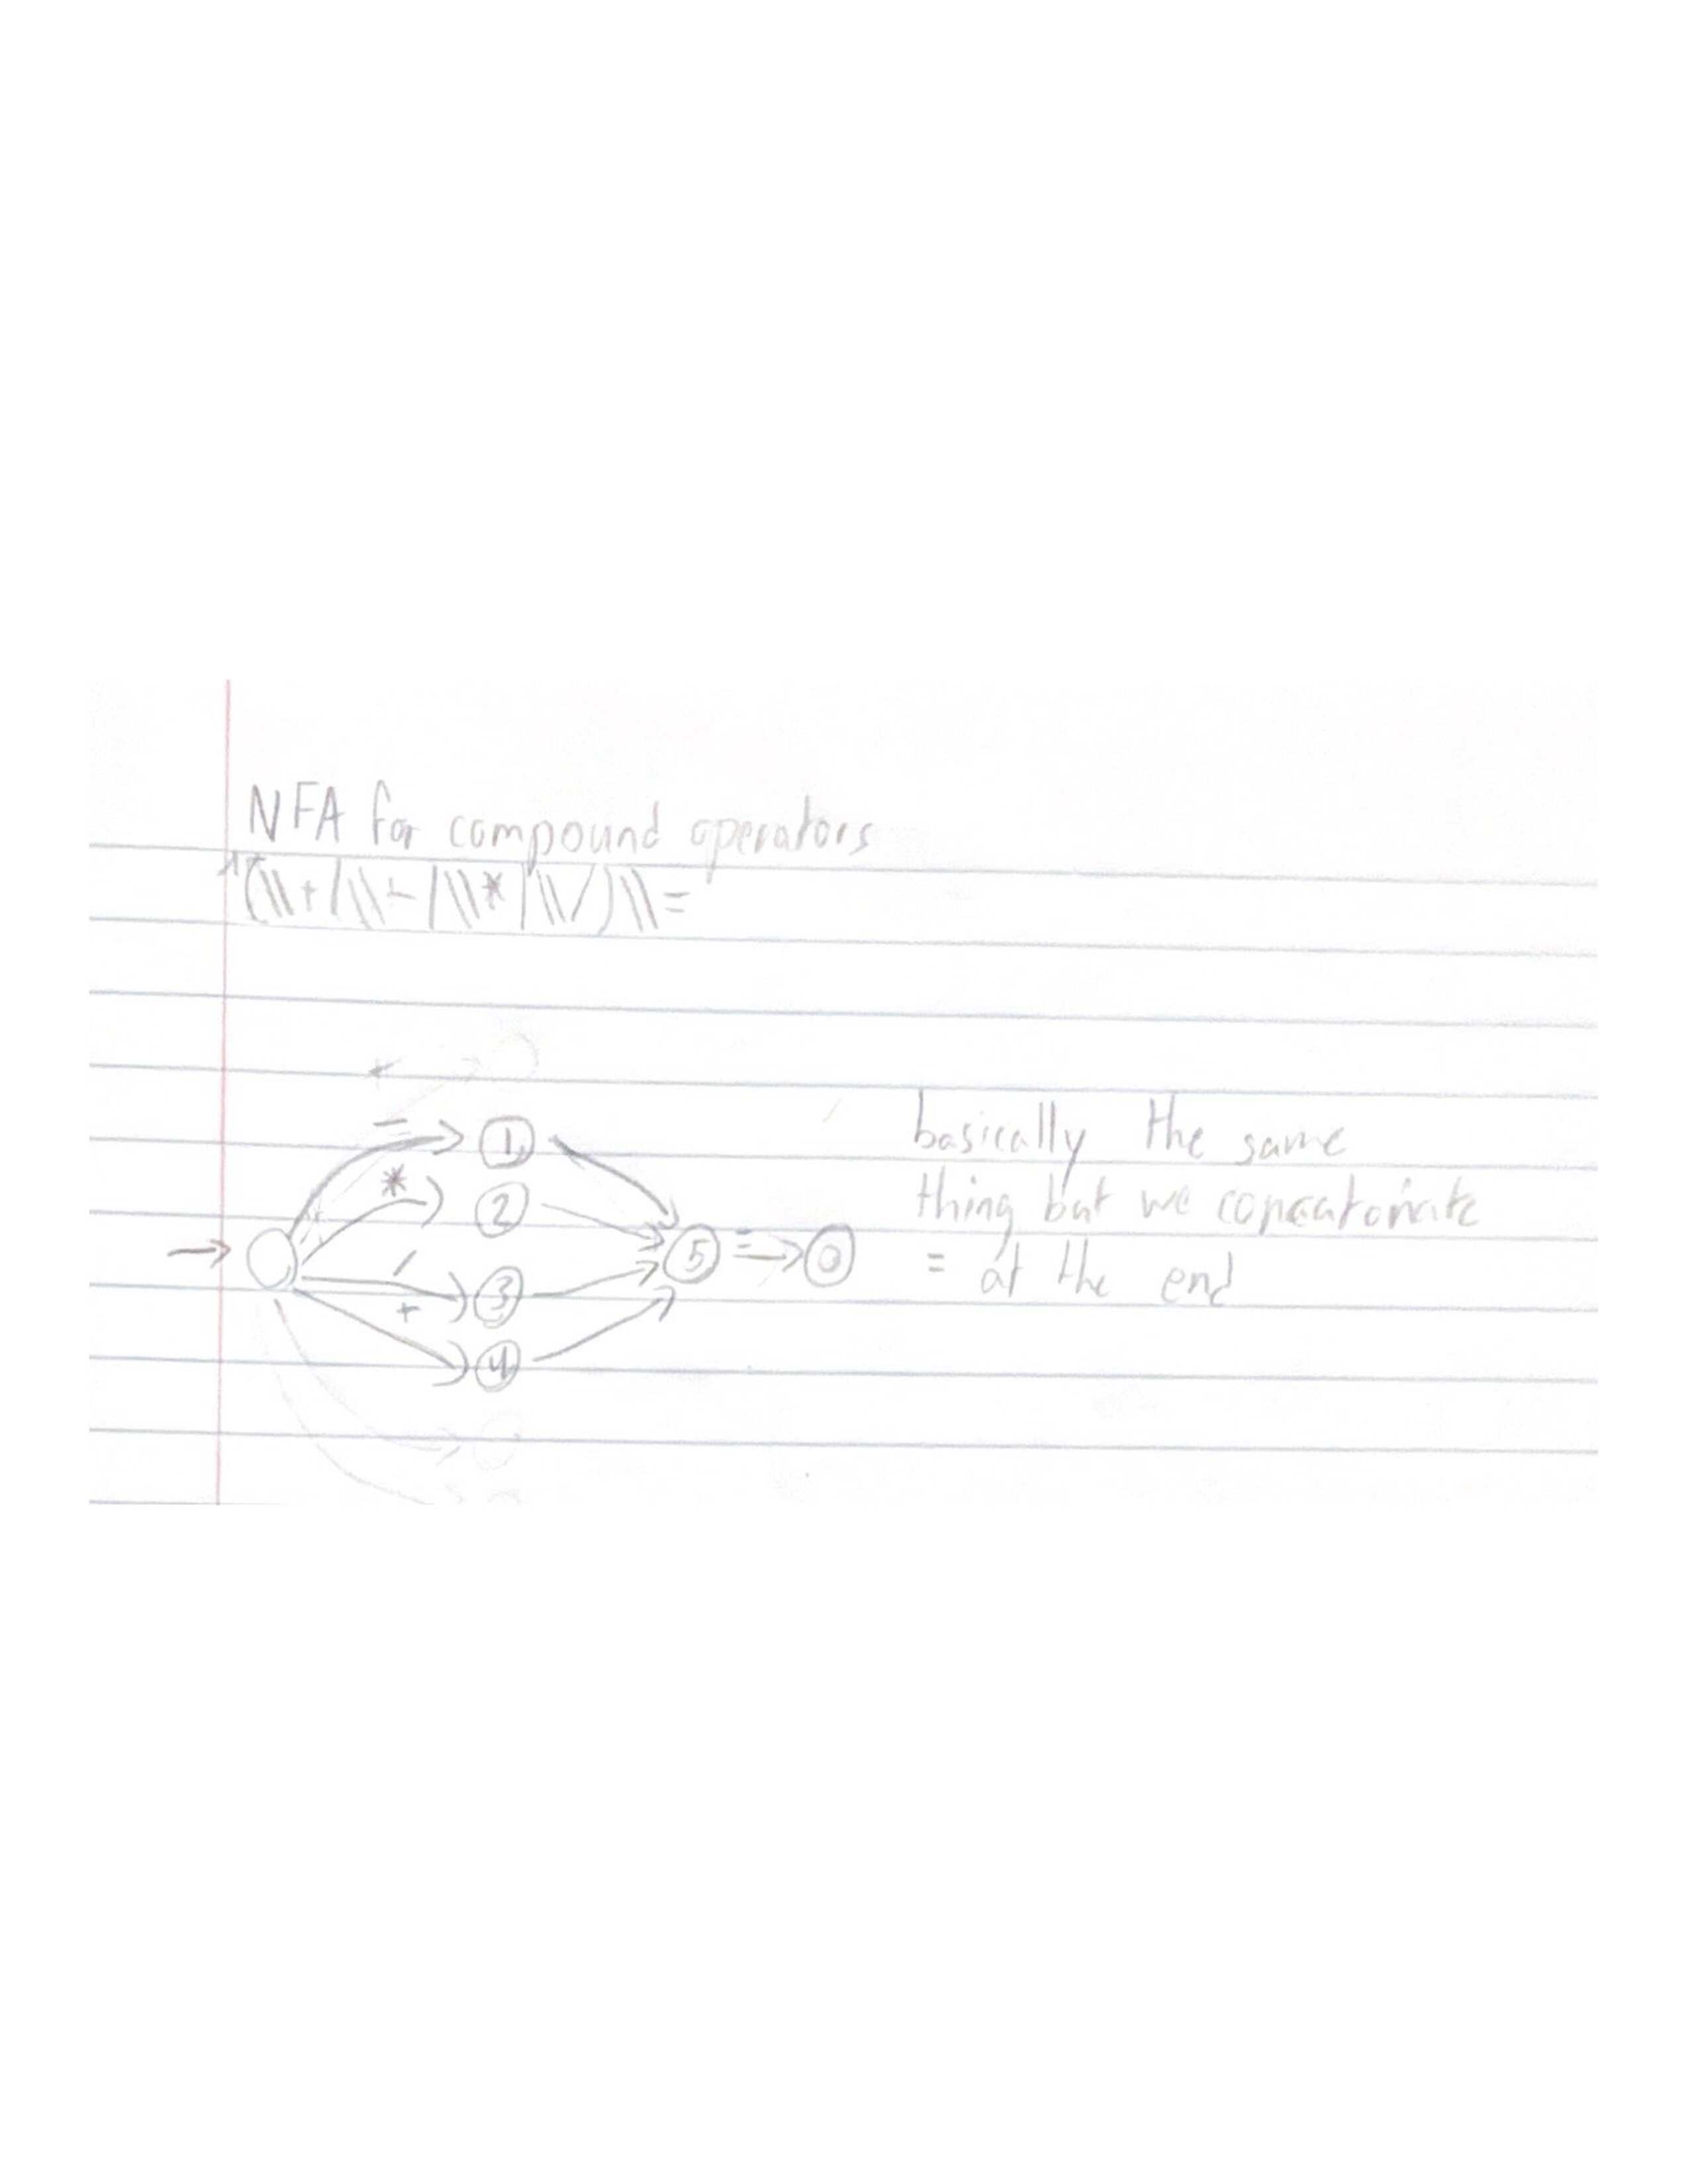 NFA for compound operators
^(\\+|\\-|\\*|\\/)\\=
-
*
/
+
1
2
3
4
5
=
basically the same
thing but we concatonate
= at the end